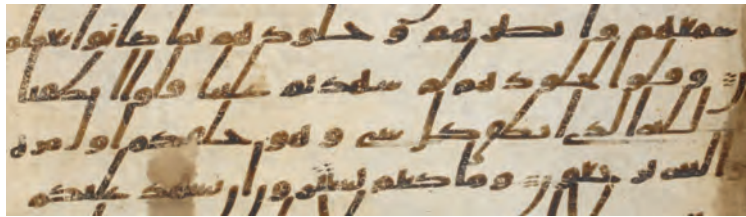 سمعهم وا بصر هم و جلود هم بما كانوا يعملو
ن وقلوا لجلود هم لم شهدتم علينا قلوا انطقنا
الله الذي انطق كل شي و هو خلقكم اول مرة و
اليه ترجعون وما كنتم تستترون ان يشهد عليكم